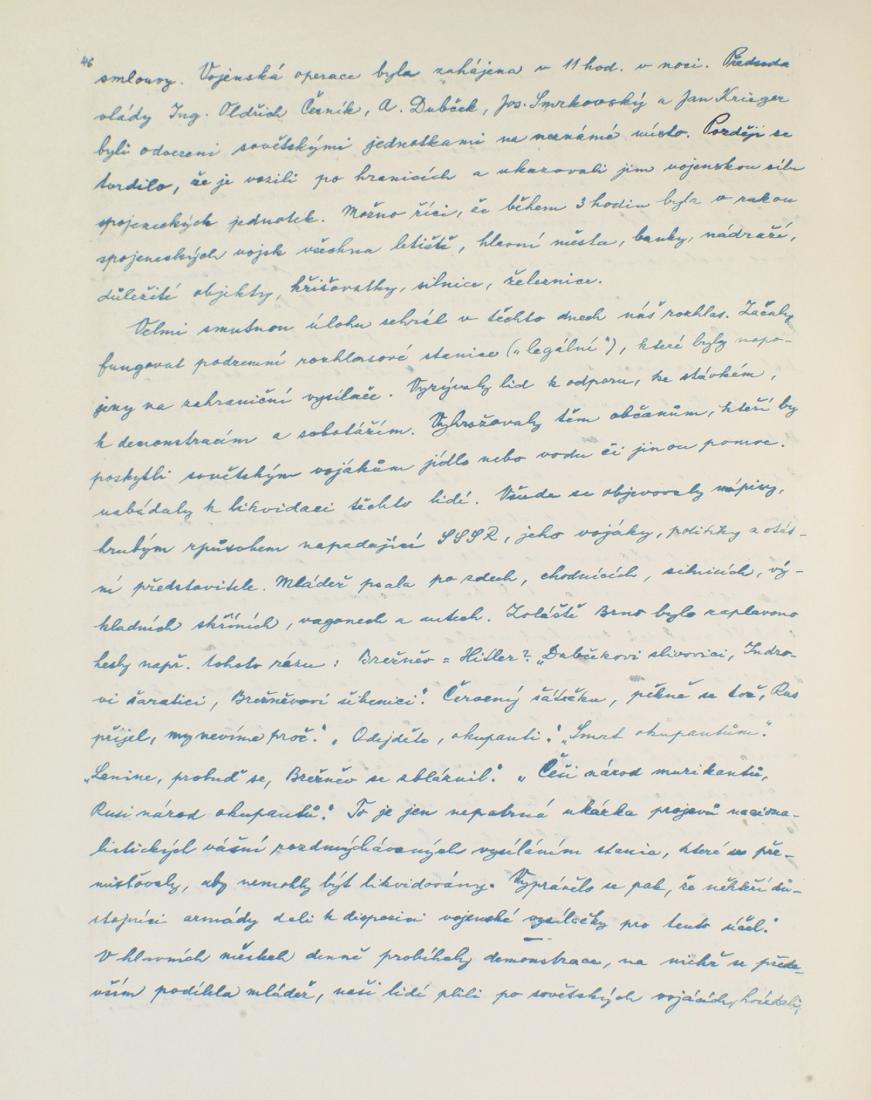 46
smlouvy. Vojenská operace byla zahájena v 11 hod. v noci. Předseda
vlády Ing. Oldřich Černík, A. Dubček, Jos. Smrkovský a Jan Krieger
byli odvezeni sovětskými jednotkami na neznámé místo. Později se
tvrdilo, že je vozili po hranicích a ukazovali jim vojenskou sílu
spojeneckých jednotek. Možno říci, že během 3 hodin byla v rukou
spojeneckých vojsk všechna letiště, hlavní města, banky, nádraží,
důležité objekty, křižovatky, silnice, železnice.
Velmi smutnou úlohu sehrál v těchto dnech náš rozhlas. Začaly
fungovat podzemní rozhlasové stanice („legální"), které byly napo-
jeny na zahraniční vysílače. Vyzývaly lid k odporu, ke stávkám,
k demonstracím a sabotážím. Vyhrožovaly těm občanům, kteří by
poskytli sovětským vojákům jídlo nebo vodu či jinou pomoc.
nabádaly k likvidaci těchto lidí. Všude se objevovaly nápisy,
hrubým způsobem napadající SSSR, jeho vojáky, politiky a stát-
ní představitele. Mládež psala po zdech, chodnících, silnicích, vý-
kladních skříních, vagonech a autech. Zvláště Brno bylo zaplaveno
hesly např. tohoto rázu: Brežněv = Hitler? „Dubčekovi slivovici, Indro-
vi šaratici, Brežněvovi šibenici". Červený šátečku, pěkně se toč, Rus
přijel, my nevíme proč." „Odejděte, okupanti." „Smrt okupantům".
„Lenine, probuď se, Brežněv se zbláznil." „Češi národ muzikantů,
Rusi národ okupantů." To je jen nepatrná ukázka projevů naciona-
listických vášní rozdmýchávaných vysíláním stanic, které se pře-
misťovaly, aby nemohly být likvidovány. Vyprávělo se pak, že někteří dů-
stojníci armády dali k disposici vojenské vysílačky pro tento účel."
V hlavních městech denně probíhaly demonstrace, na nichž se přede-
vším podílela mládež, naši lidé plili po sovětských vojácích,